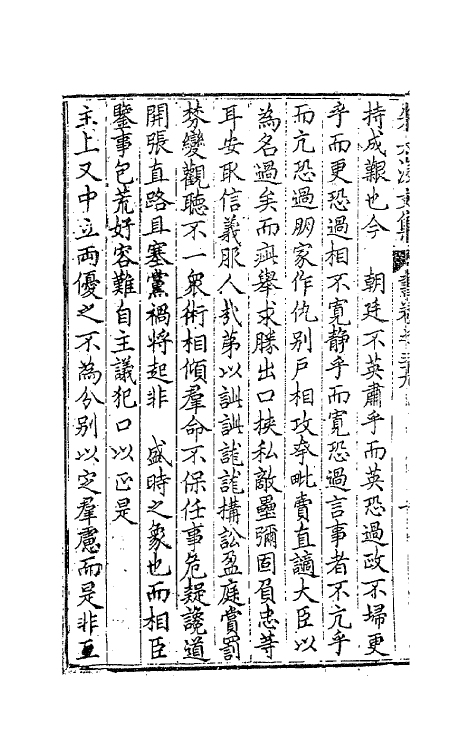 持成艱也今　朝廷不英肅乎而英恐過政不埽更
乎而更恐過相不寬静乎而寬恐過言事者不亢乎
而亢恐過朋家作仇别戶相攻奉毗費直謫大臣以
為名過矣而疵舉求勝出口挾私敵壘彌固負忠等
耳安取信義服人哉弟以訿訿詤詤搆訟盈庭賞罰
棼變觀聽不一衆術相傾羣命不保任事危疑詭道
開張直路且塞黨禍將起非　盛時之象也而相臣
鑒事包荒好容難自主議犯口以正是
主上又中立两優之不為分别以定羣慮而是非互